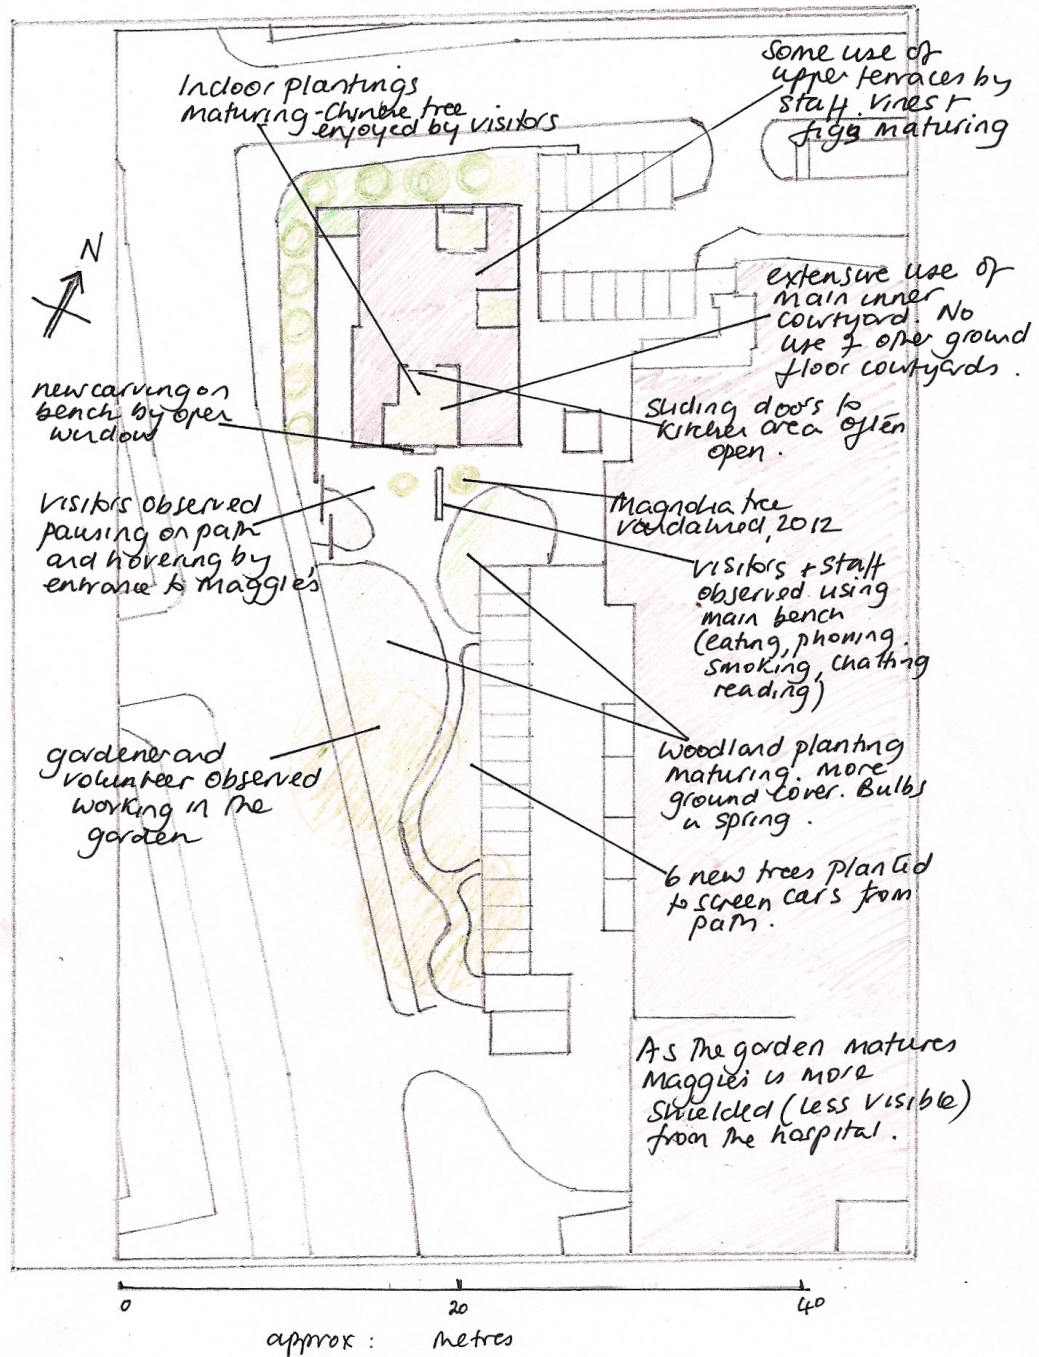 Some use of
upper terraces by
staff. Vines +
figs maturing
Indoor plantings
maturing - Chinese tree
enjoyed by visitors
N
extensive use of
main inner
courtyard. No
use of other ground
floor courtyards.
new carving on
bench by open
window
Sliding doors to
kitchen area often
open.
Visitors observed
pausing on path
and hovering by
entrance to Maggie's
Magnolia tree
vandalised, 2012
visitors + staff
observed using
main bench
(eating, phoning.
smoking, chatting
reading)
gardener and
volunteer observed
working in the
garden
Woodland planting
maturing. more
ground cover. Bulbs
in spring.
6 new trees planted
to screen cars from
path.
As the garden matures
Maggie's is more
shielded (less visible)
from the hospital.
0 20 40
approx: Metres